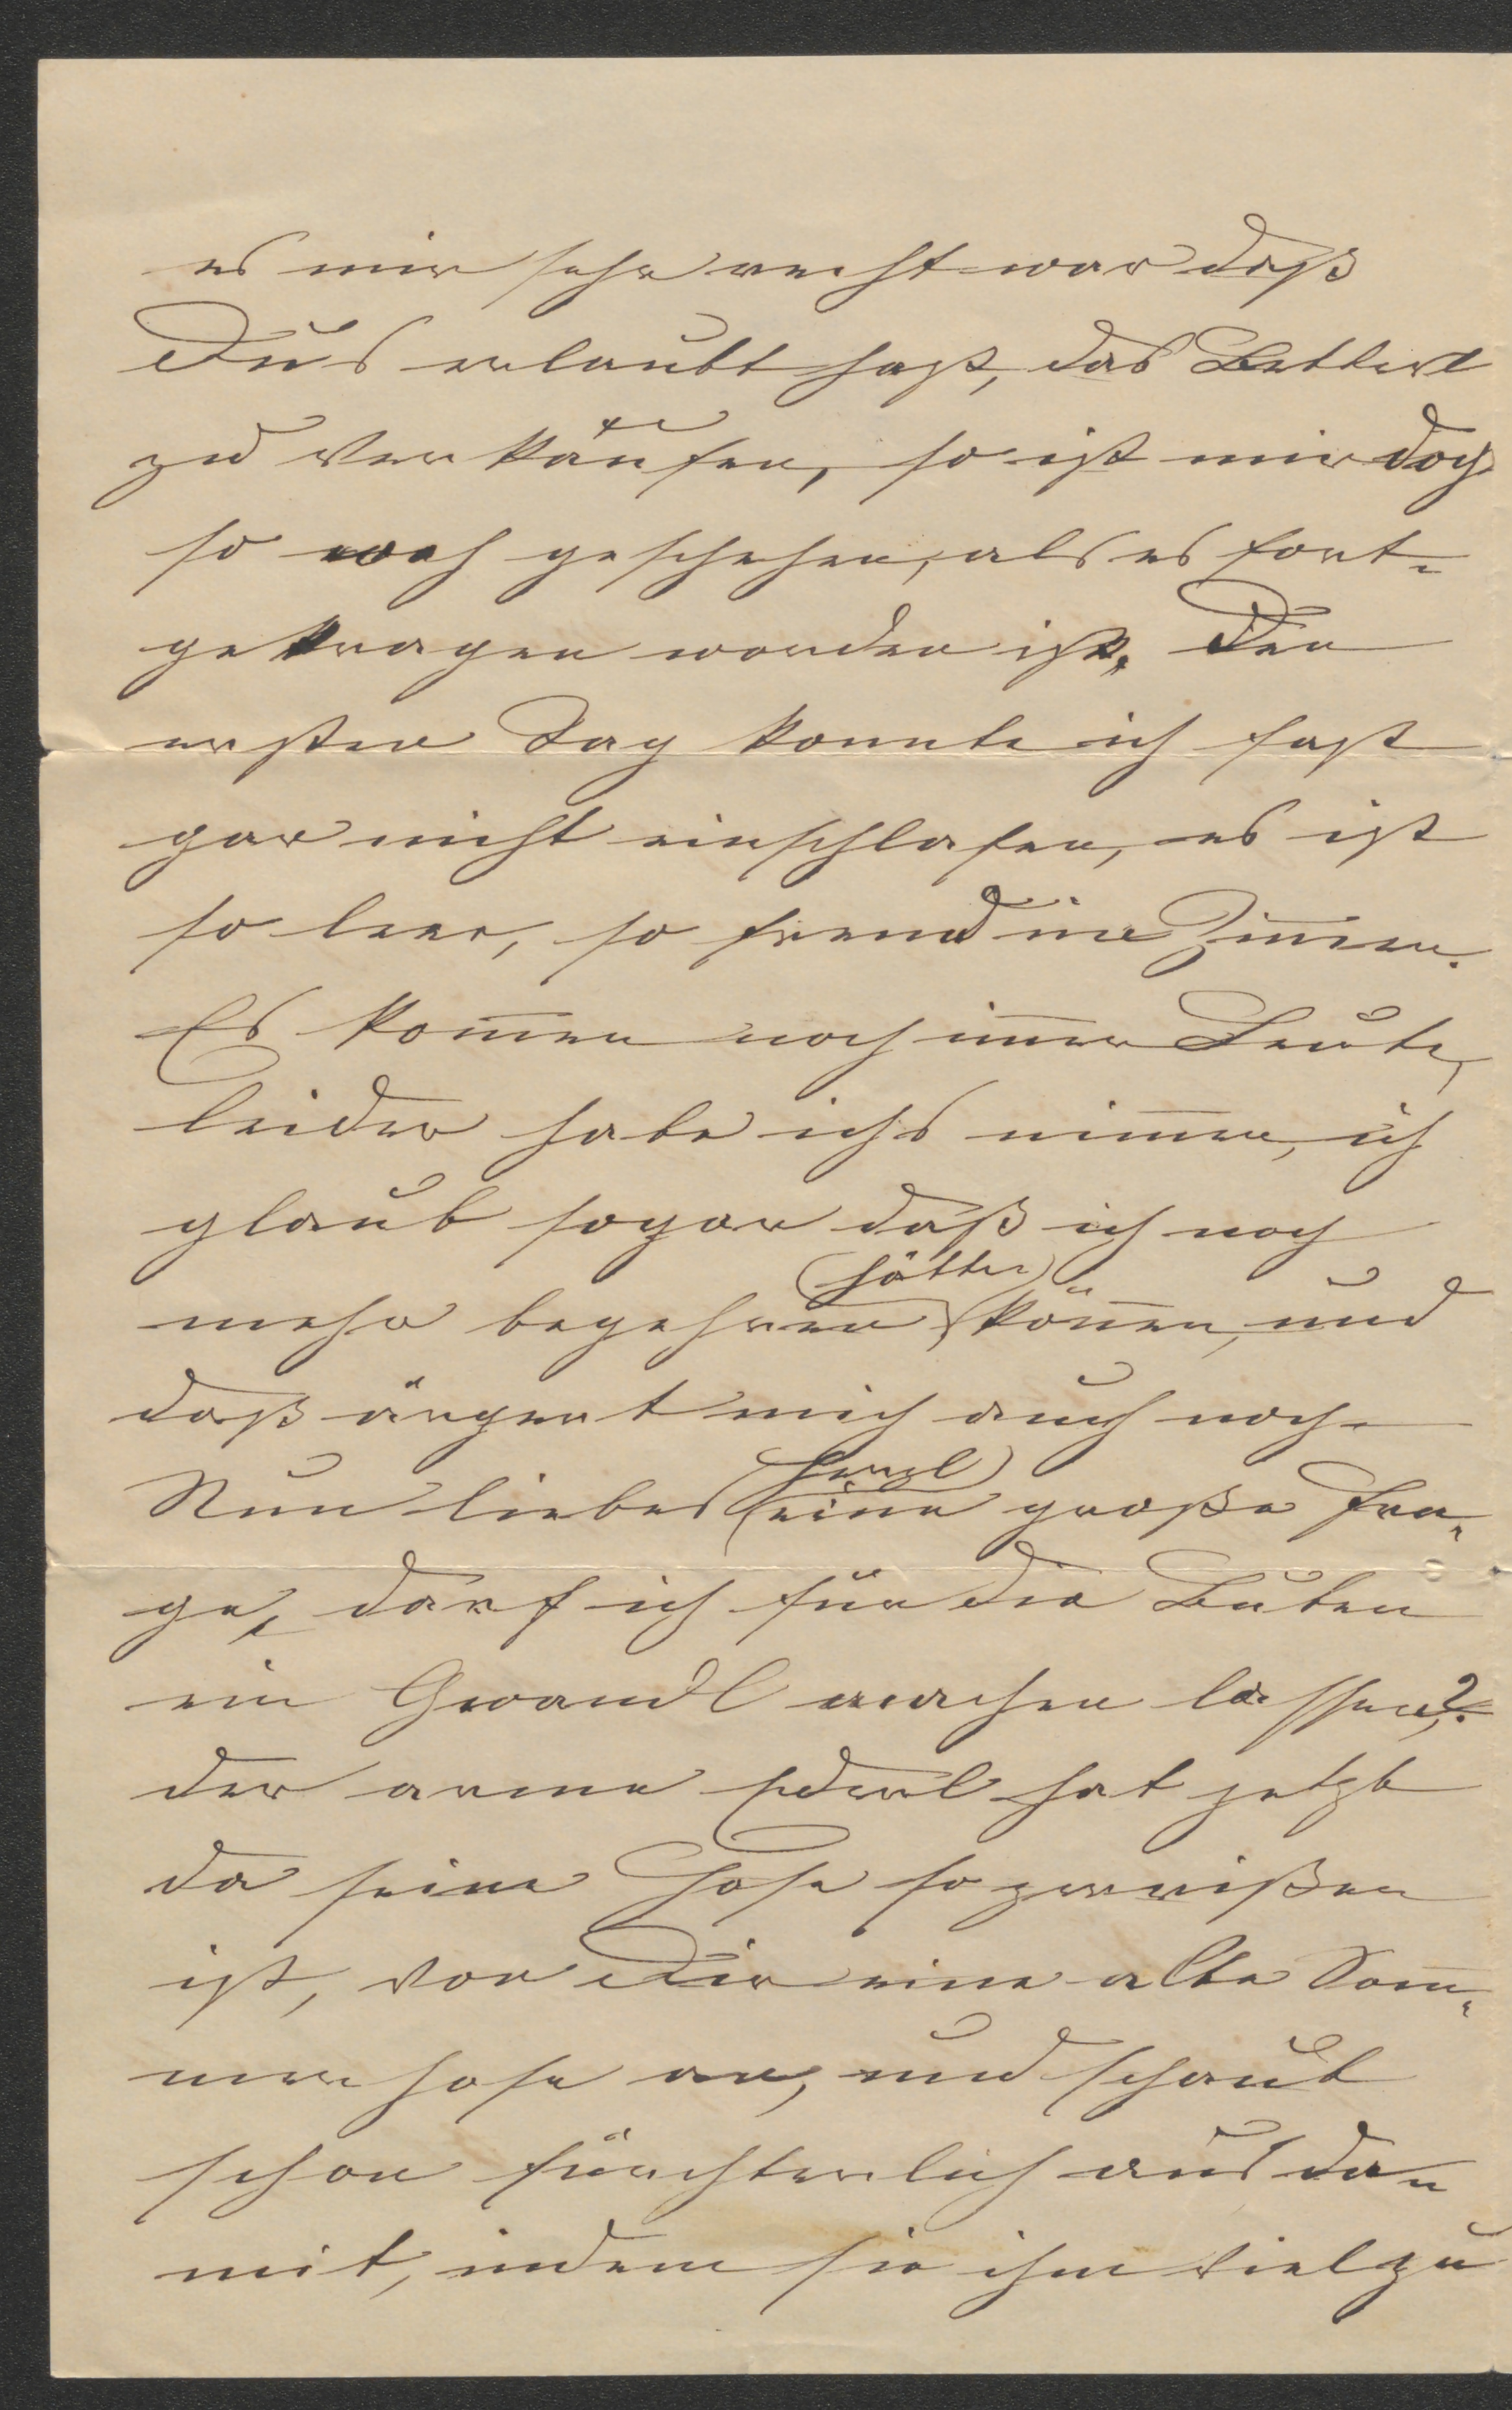 es mir sehr recht war daß
Du's erlaubt hast, das Betterl
zu verkaufen, so ist mir doch
so weh geschehen, als es fort-
getragen worden ist. Den
ersten Tag konnte ich fast
gar nicht einschlafen, es ist
so leer, so fremd im Zim̅er.
Es kom̅en noch im̅er Leute,
leider habe ichs nim̅er, ich
glaub sogar daß ich noch
mehr begehren (hätte) kön̅en, und
daß ärgert mich auch noch.
Nun liebes eine große Fra-
ge, darf ich für die Buben
ein Gwandl machen lassen?
der arme Ederl hat jetzt
da seine Hose so zerrißen
ist, von Dir eine alte Som-
merhose an, und schaut
schon fürchterlich aus da-
mit, indem sie ihm viel zu